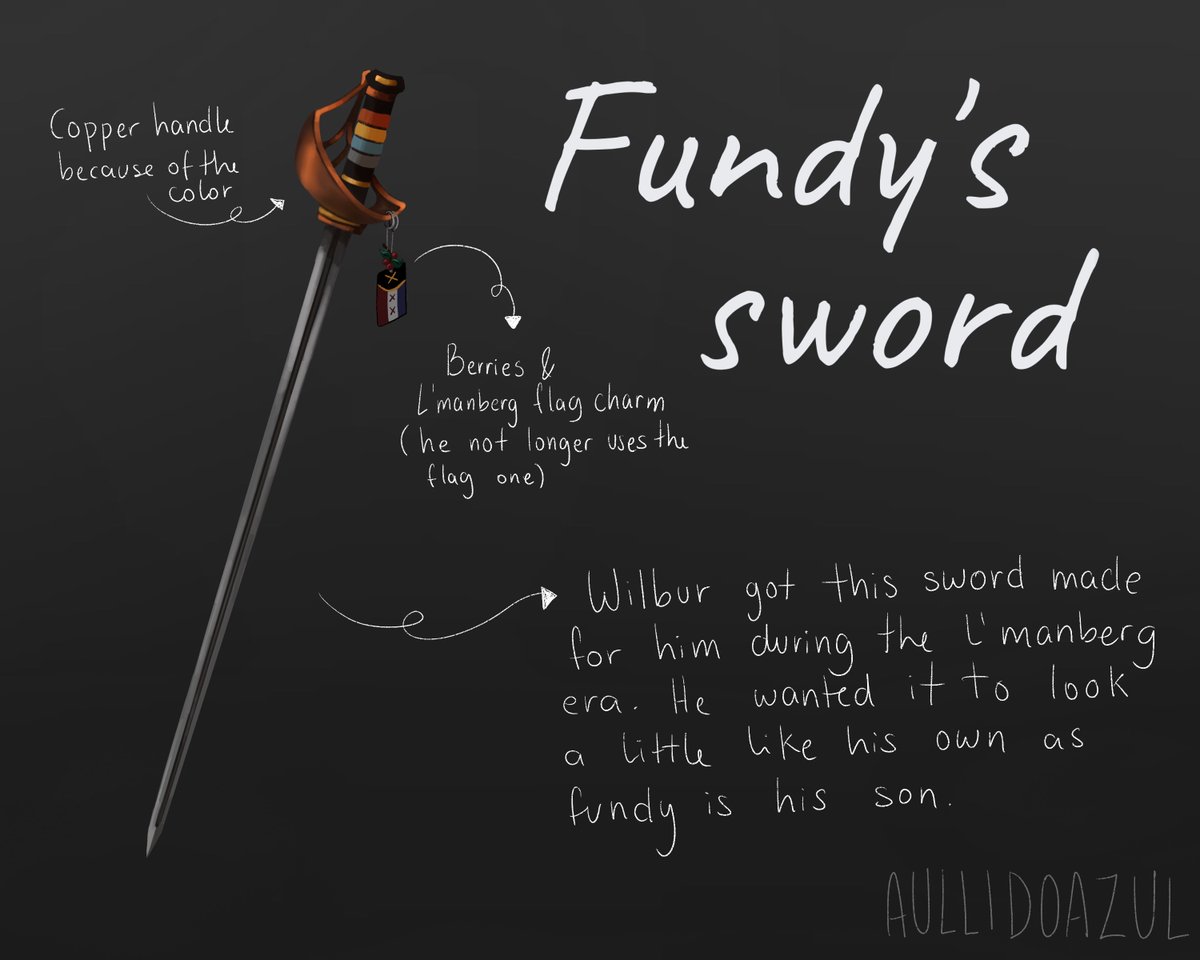 Fundy's
sword
Copper handle
because of the
color
Berries &
L'manberg flag charm
(he not longer uses the
flag one)
Wilbur got this sword made
for him during the L'manberg
era. He wanted it to look
a little like his own as
fundy is his son.
AULLIDOAZUL